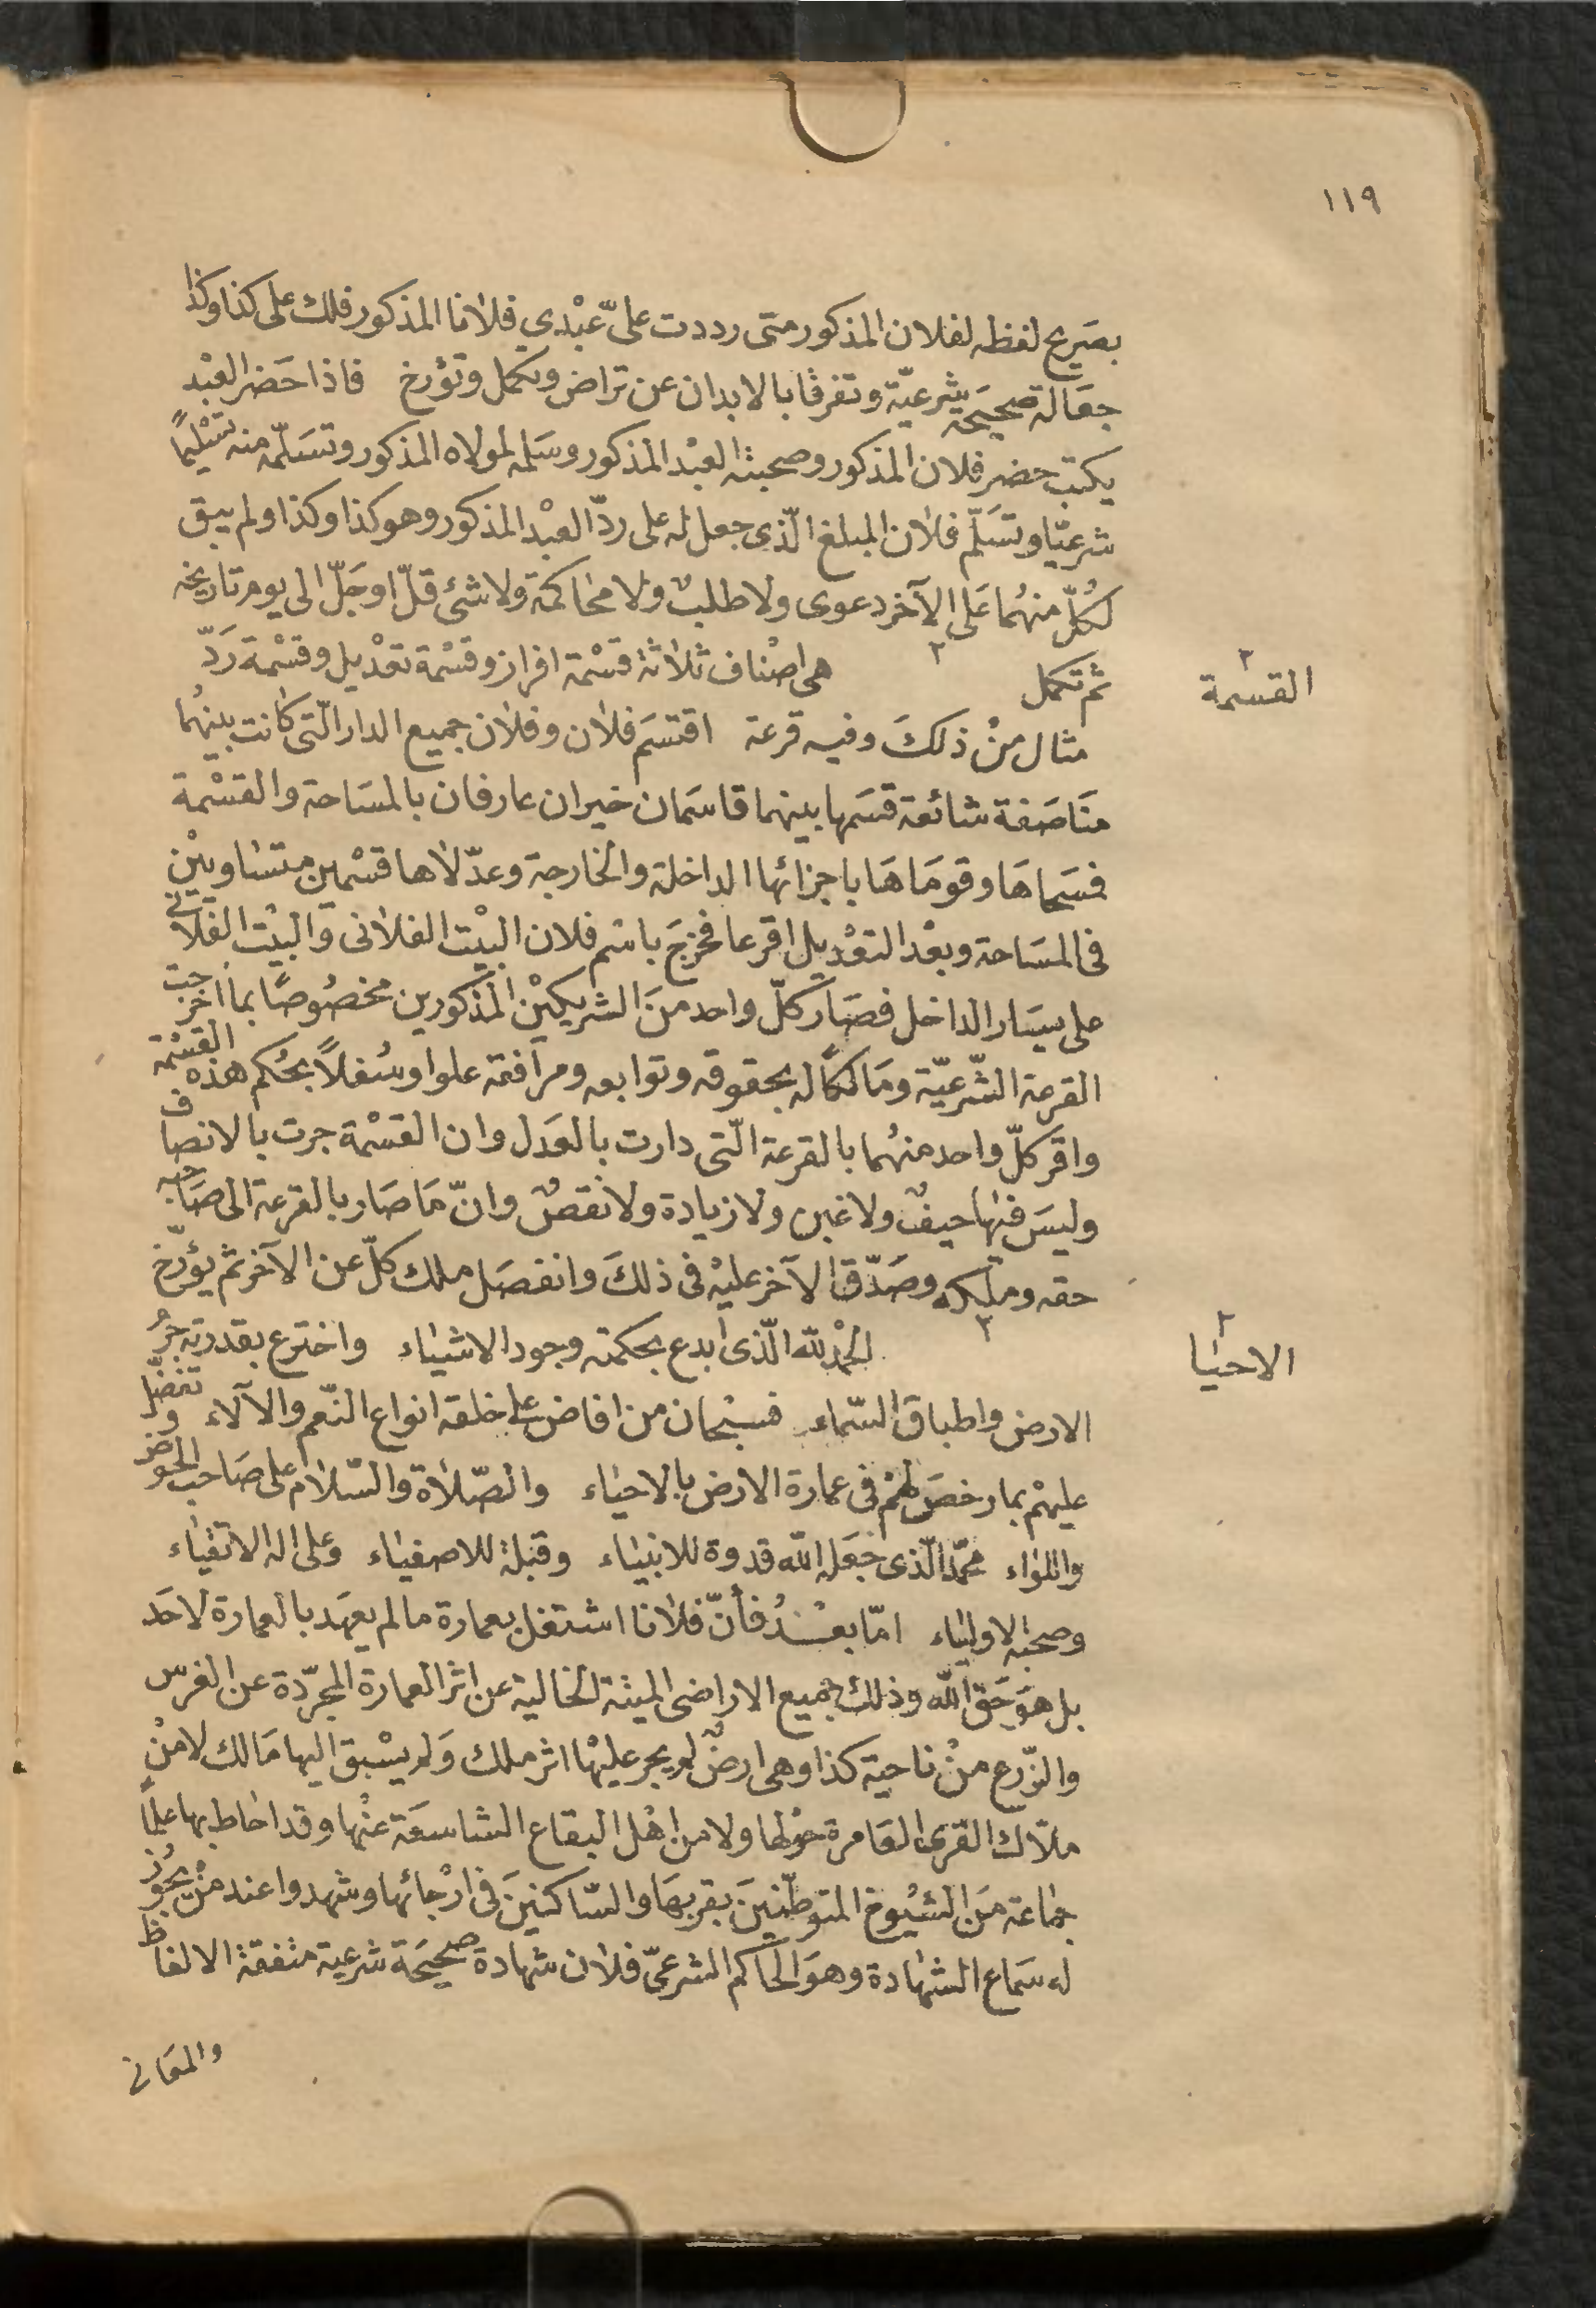 ١١٩
بصَريح لفظه لفلان المذكور متى رددت علىّ عبْدي فلانا المذكور فلك على كذا وكذا
جعَالة صحيحَة شرعيّة وتفرقا بالابدان عن تراض ويكمل وتؤرخ فاذا حَضر العبْد
يكتب حضر فلان المذكور وصحبته العبْد المذكور وسَلمه لمولاه المذكور وتسَلّمه منه تسْليمًا
شرعيّا وتسَلّم فلان المبلغ الّذى جعل له على ردّ العبْد المذكور وهو كذا وكذا ولم يبق
لكُلّ منهُما عَلى الآخر دعوى ولا طلبٌ ولا محاكمة ولا شئ قلّ او جَلّ الى يوم تاريخه
ثم تكمل ٢ هى اصْناف ثلاثة قسْمة افراز وقسْمة تعْديل وقسْمة رَدّ
القسمة ٢
مثال منْ ذلكَ وفيه قرعة اقتسَم فلان وفلان جميع الدار الّتى كانت بينهُما
مَناصَفة شائعة قسَمها بينهما قاسَمان خيران عارفان بالمسَاحة والقسْمة
فسَماهَا وقومَاهَا باجزائها الداخلة والخارجة وعدّلاها قسْمين متسَاويين
فى المسَاحة وبعْد التعْديل اقرعا فخرجَ باسْم فلان البيْت الفلانى والبيْت الفلانى
على يسَار الداخل فصَار كلّ واحد منَ الشريكيْن المذكورين مخصُوصًا بما اخرجت
القرعة الشّرعيّة ومَالكًا له بحقوقه وتوابعه ومرافقه علوا وسُفلًا بحُكم هذه القسْمة
واقر كلّ واحد منهُما بالقرعة الّتى دارت بالعَدل وان القسْمة جرت بالانصاف
وليسَ فيهَا حيفٌ ولا غبن ولا زيادة ولا نقصٌ وانّ مَا صَار بالقرعة الى صَاحبه
حقه وملكه وصَدّق الآخر عليْه فى ذلكَ وانفصَل ملك كلّ عن الآخر ثم يؤرّخ
الاحيا ٢
٢ الحمْد للّه الّذى ابدع بحكمته وجود الاشياء واخترع بقدرته جرُ
الارض واطباق السّماء فسبْحان من افاض على خلقه انواع النّعم والآلاء وتفضّل
عليهْم بما رخصَ لهُمْ فى عمارة الارض بالاحياء والصّلاة والسّلام على صَاحب الحوض
واللواء محمّد الّذى جَعله اللّه قدوة للانبياء وقبْلة للاصفياء وعلى اله الاتقياء
وصحبْه الاولياء امّا بعْدُ فأنّ فلانا اشتغل بعمارة ما لم يعهَد بالعمارة لاحَد
بل هوَ حَق اللّه وذلك جميع الاراضى الميتة الخالية عن اثر العمارة المجرّدة عن الغرس
والزّرع منْ ناحية كذا وهى ارضٌ لم يجر عليْها اثر ملك وَلم يسْبق اليها مَالك لا منْ
ملّاك القرى العَامرة حوْلها ولا من اهْل البقاع الشاسعَة عنْها وقد احاط بها علمًا
جماعة منَ الشيُوخ المتوطّنينَ بقربهَا والسّاكنينَ فى ارْجائها وشهدوا عند منْ يجُوز
له سَماع الشهادة وهوَ الحاكم الشرعىّ فلان شهادة صحيحَة شرعية متفقة الالفاظ
والمعَانى